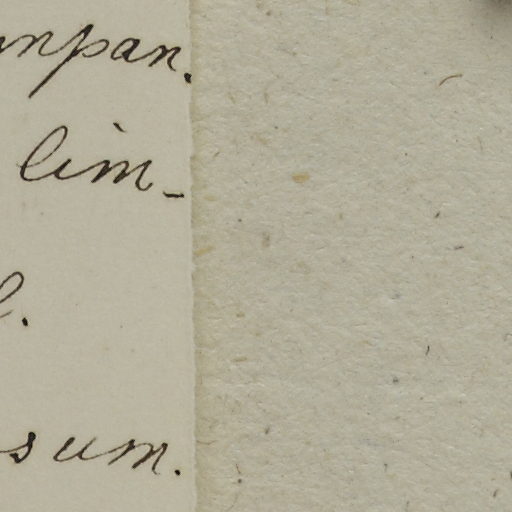 unpan.
lim-
l.
sum.